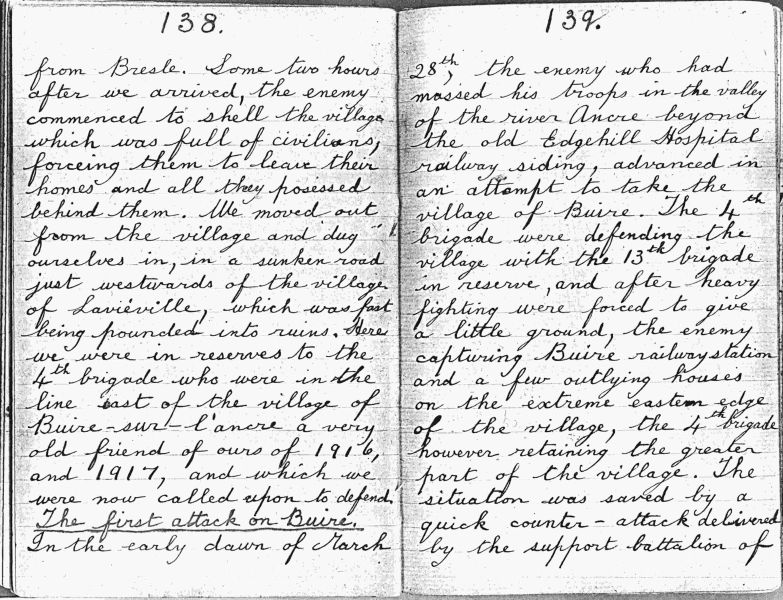 138.
from Bresle. Some two hours
after we arrived, the enemy
commenced to shell the village
which was full of civilians,
forceing them to leave their
homes and all they posessed
behind them. We moved out
from the village and dug
ourselves in, in a sunken road
just westwards of the village
of Laviéville, which was fast
being pounded into ruins. Here
we were in reserves to the
4th brigade who were in the
line east of the village of
Buire-sur-l'ancre a very
old friend of ours of 1916,
and 1917, and which we
were now called upon to defend.
The first attack on Buire.
In the early dawn of March
139.
28th, the enemy who had
massed his troops in the valley
of the river Ancre beyond
the old Edgehill Hospital
railway siding, advanced in
an attempt to take the
village of Buire. The 4th
brigade were defending the
village with the 13th brigade
in reserve, and after heavy
fighting were forced to give
a little ground, the enemy
capturing Buire railway station
and a few outlying houses
on the extreme eastern edge
of the village, the 4th brigade
however retaining the greater
part of the village. The
situation was saved by a
quick counter-attack delivered
by the support battalion of